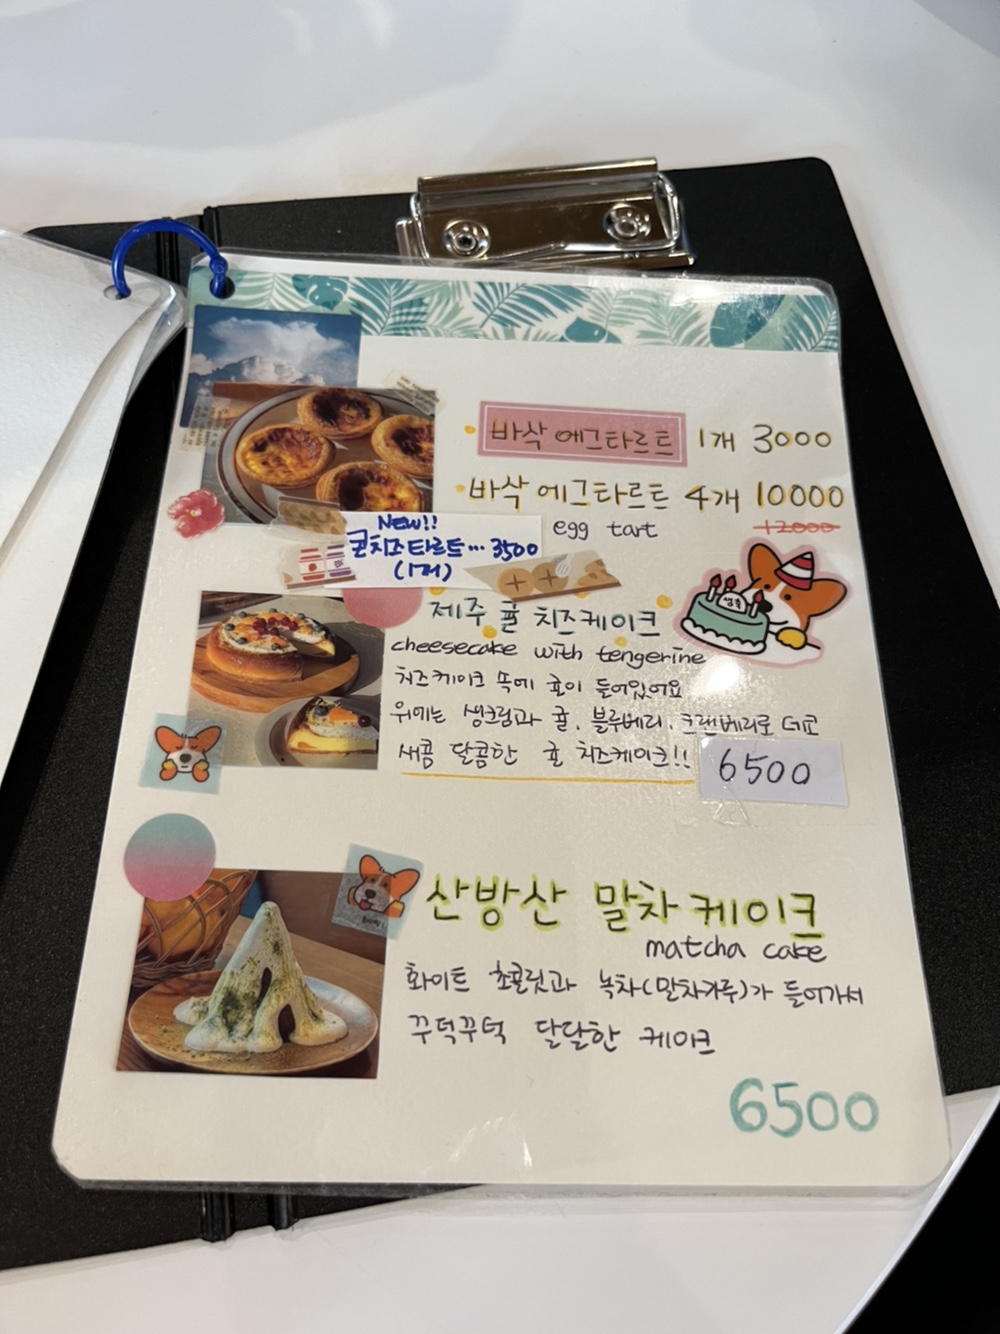 바삭 에그타르트 1개 3000
바삭 에그타르트 4개 10000
egg tart 12000
NEW!!
콘치즈타르트... 3500
(1개)
제주 귤 치즈케이크
cheesecake with tengerine
치즈케이크 속에 귤이 들어있어요
위에는 생크림과 귤, 블루베리, 크랜베리로 데코
새콤 달콤한 귤 치즈케이크!!
6500
산방산 말차케이크
matcha cake
화이트 초콜릿과 녹차(말차가루)가 들어가서
꾸덕꾸덕 달달한 케이크
6500